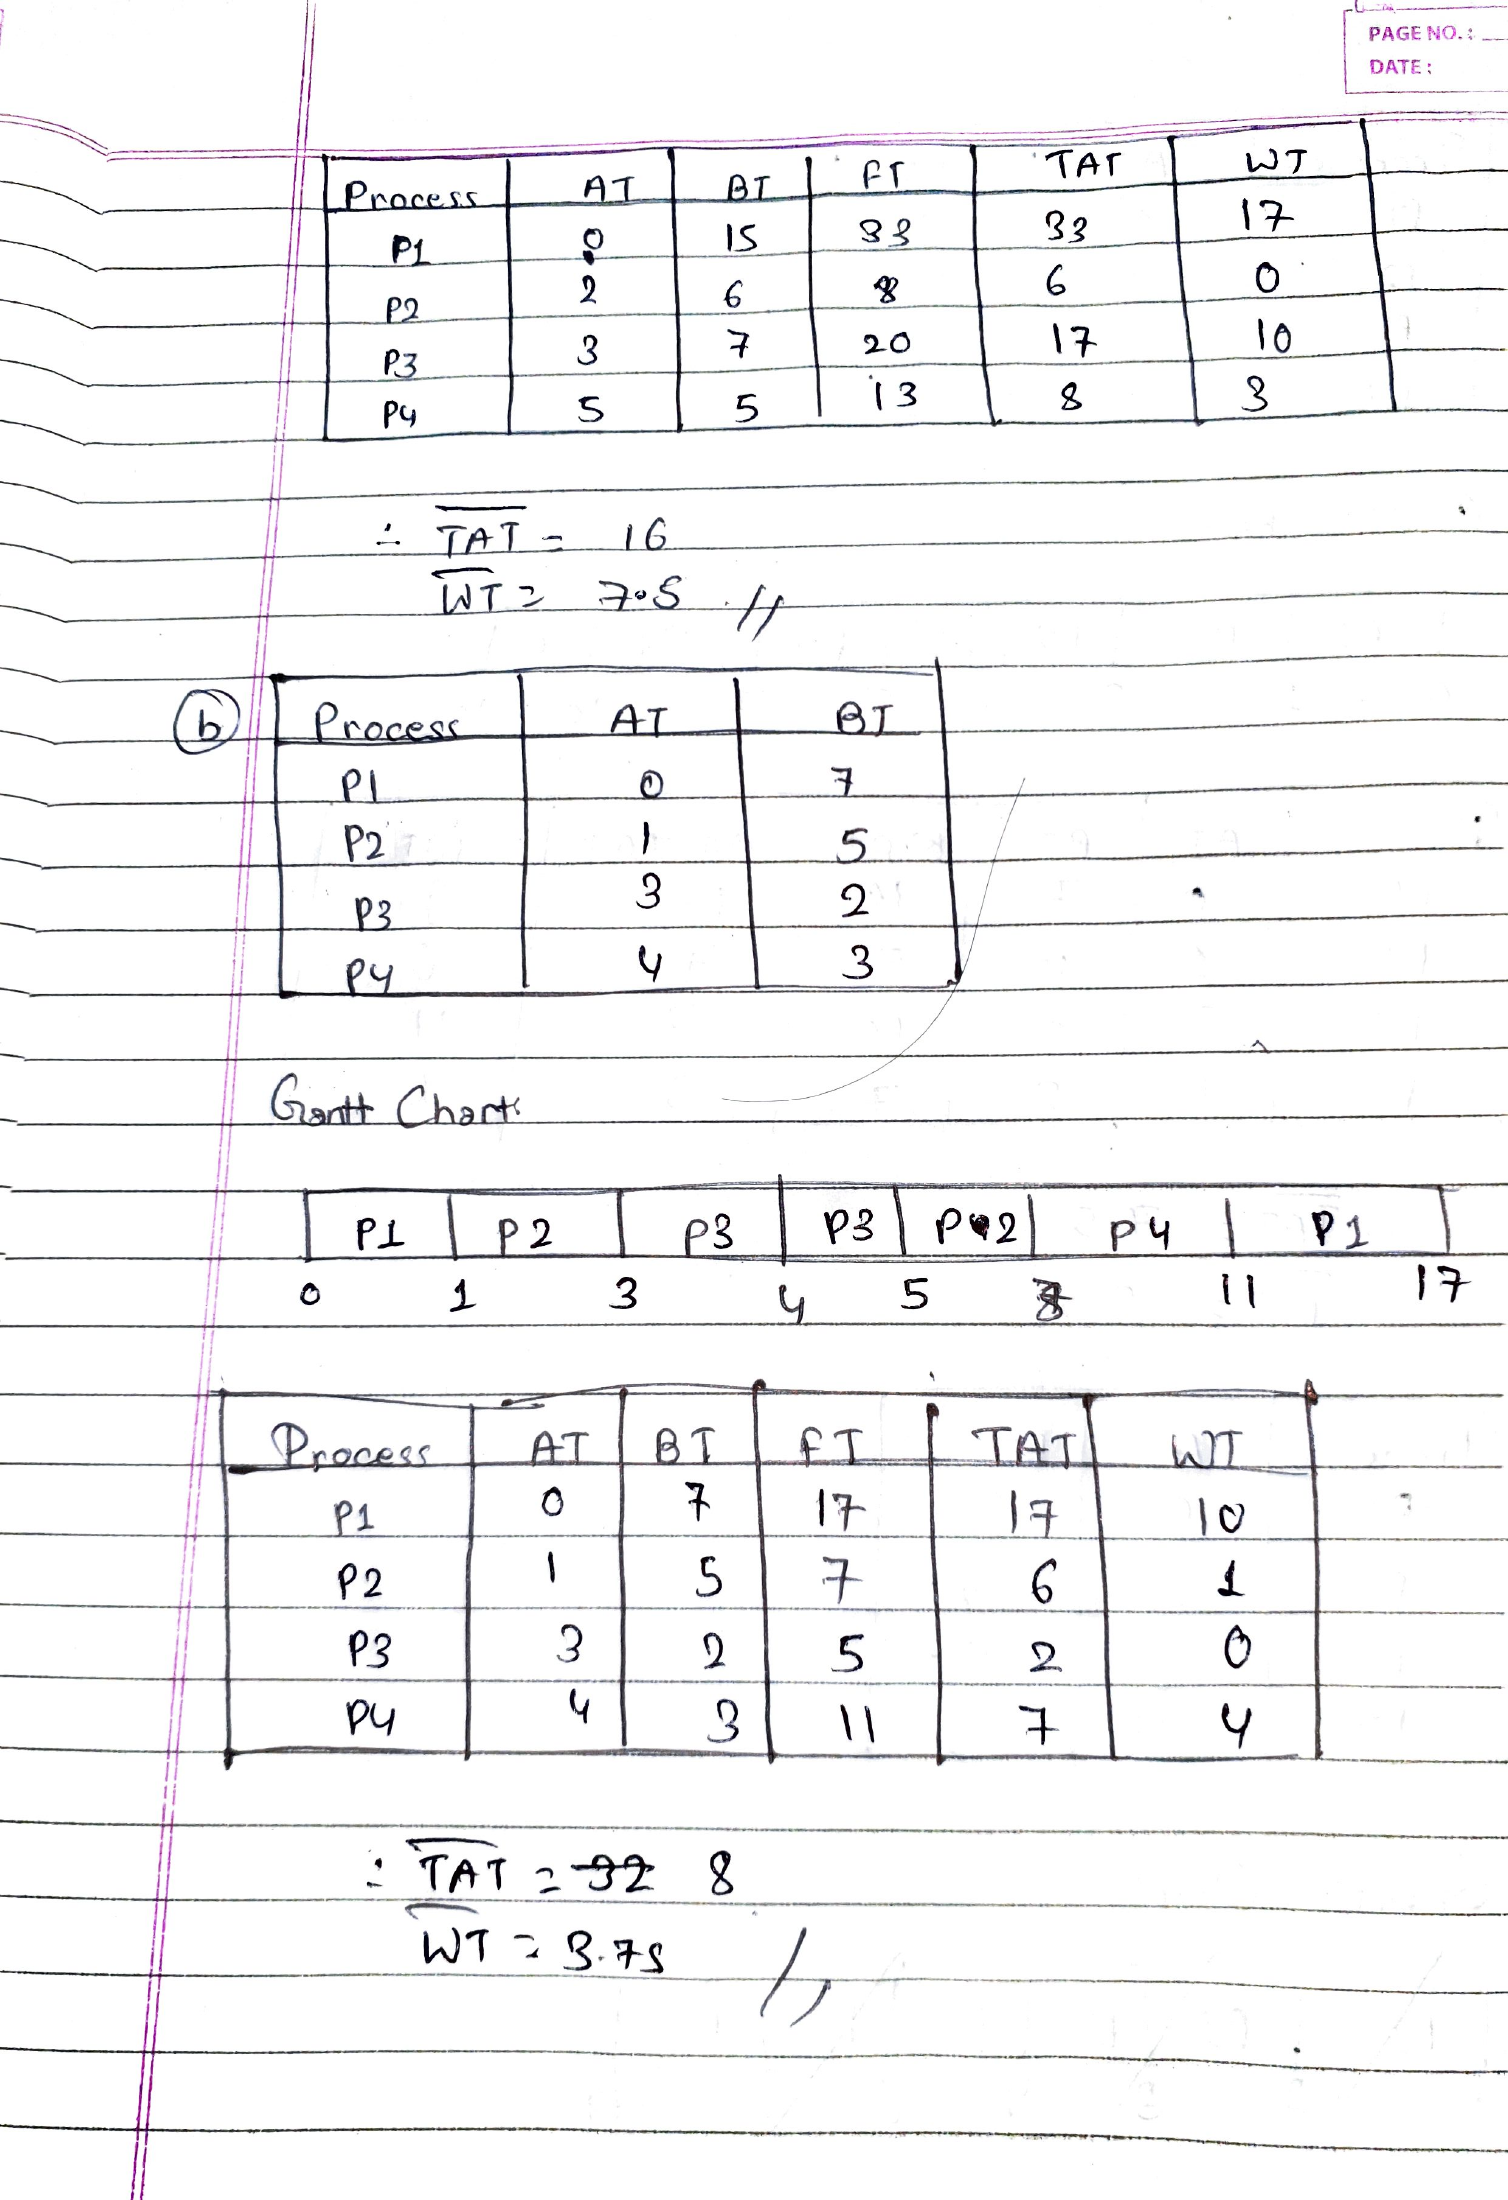 PAGE NO.:
DATE:
Process AT BT FT TAT WT
P1 0 15 33 33 17
P2 2 6 8 6 0
P3 3 7 20 17 10
P4 5 5 13 8 3
∴ TAT = 16
WT = 7.5 //
(b) Process AT BT
P1 0 7
P2 1 5
P3 3 2
P4 4 3
Gantt Chart:
P1 P2 P3 P3 P2 P4 P1
0 1 3 4 5 8 11 17
Process AT BT FT TAT WT
P1 0 7 17 17 10
P2 1 5 7 6 1
P3 3 2 5 2 0
P4 4 3 11 7 4
∴ TAT = 32 8
WT = 3.75 //